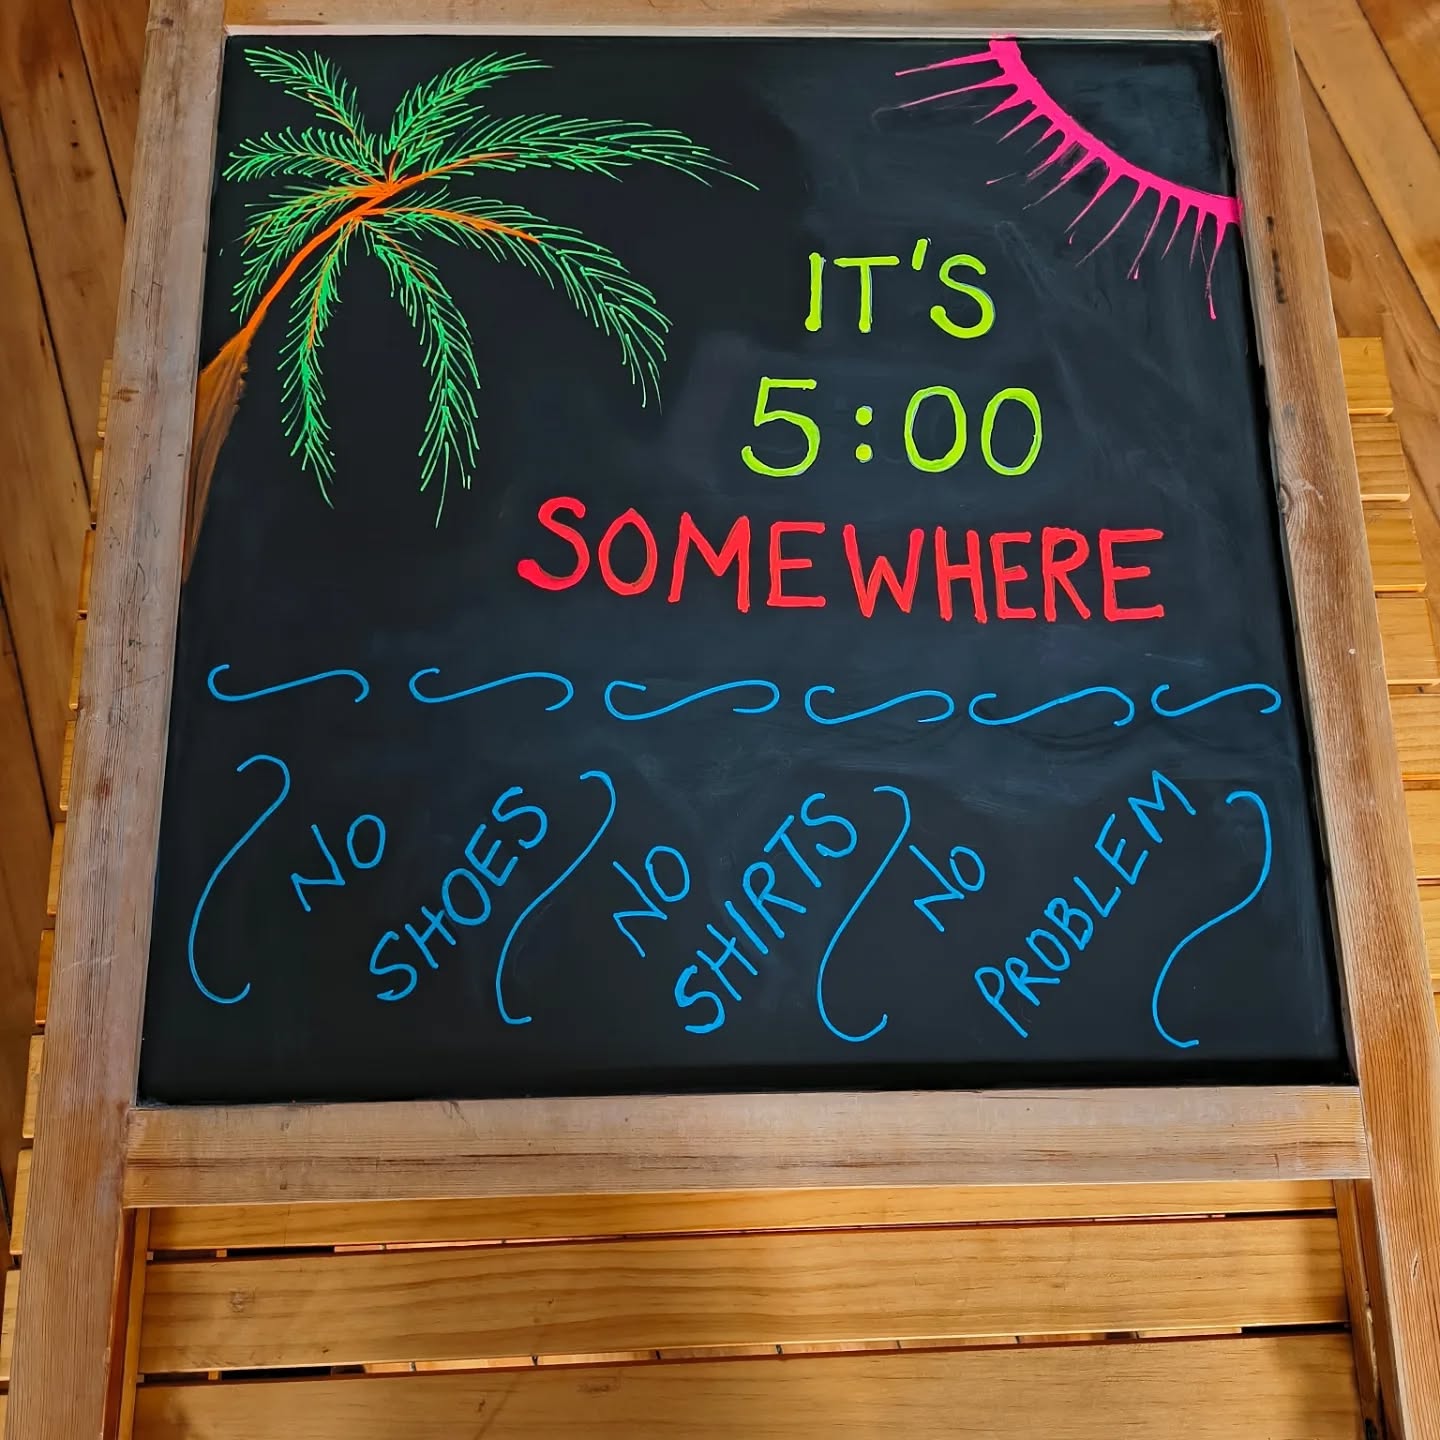 IT'S
5:00
SOMEWHERE
NO
SHOES
NO
SHIRTS
NO
PROBLEM